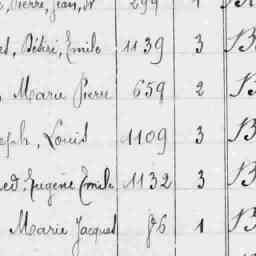 Pierre, Jean, N 299 1
Désiré, Emile 1139 3 B
Marie Pierre 659 2 B
eph, Louis 1109 3 B
ed, Eugène Emile 1132 3 B
Marie Jacques 76 1 B